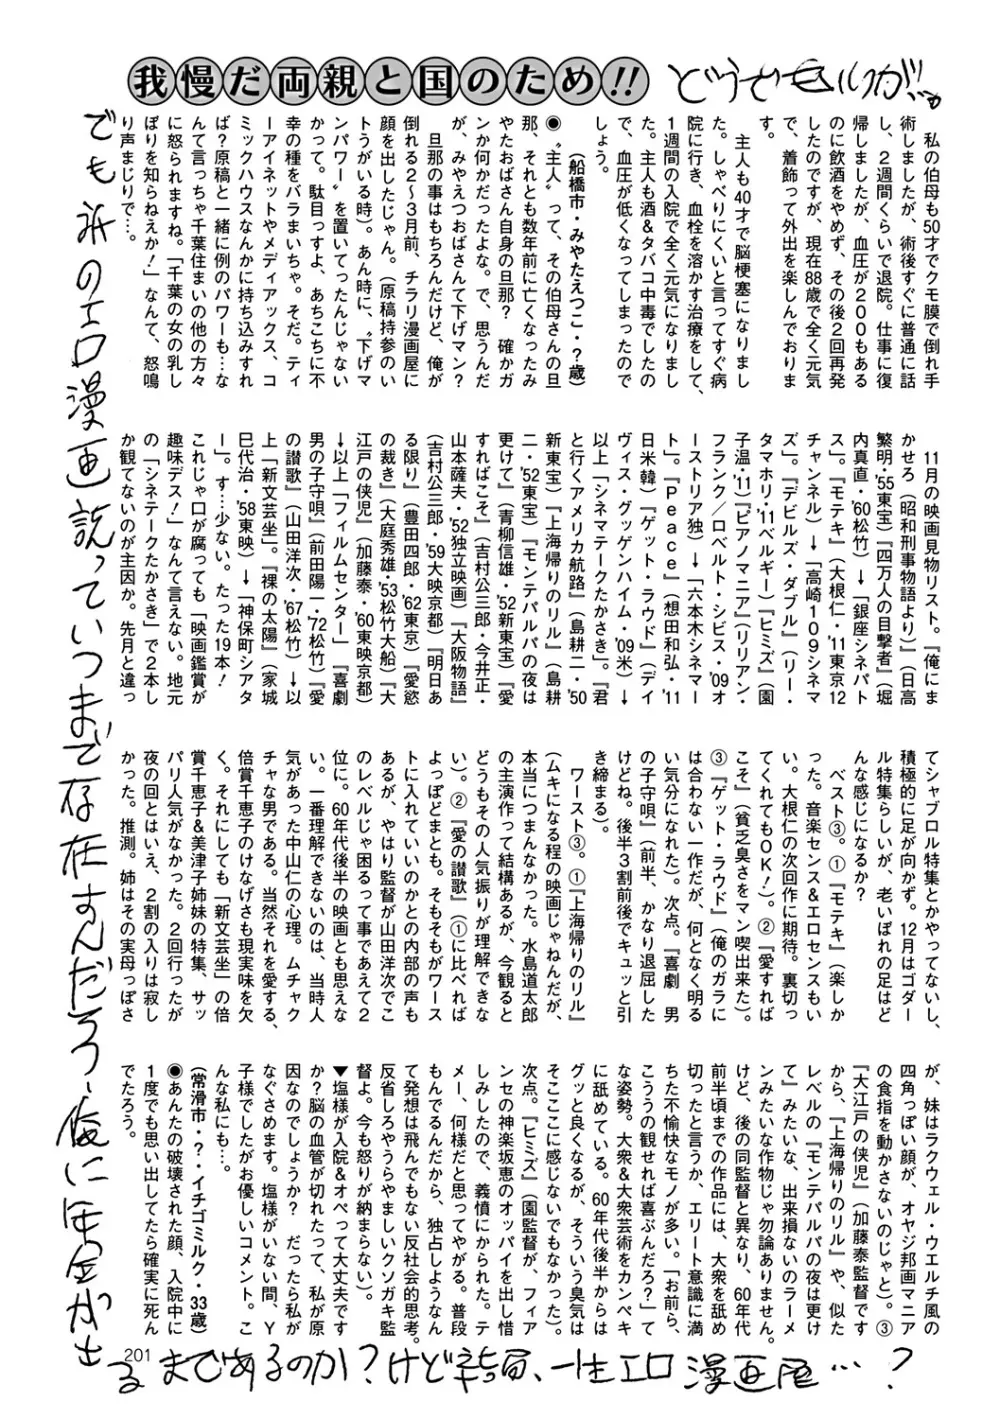 我慢だ両親と国のため!!
私の伯母も50才でクモ膜で倒れ手
術しましたが、術後すぐに普通に話
し、2週間くらいで退院。仕事に復
帰しましたが、血圧が200もある
のに飲酒をやめず、その後2回再発
したのですが、現在88歳で全く元気
で、着飾って外出を楽しんでおりま
す。
主人も40才で脳梗塞になりまし
た。しゃべりにくいと言ってすぐ病
院に行き、血栓を溶かす治療をして、
1週間の入院で全く元気になりまし
た。主人も酒&タバコ中毒でしたの
で、血圧が低くなってしまったので
しょう。
(船橋市・みやたえつこ・?歳)
◉〝主人〟って、その伯母さんの旦
那、それとも数年前に亡くなったみ
やたおばさん自身の旦那? 確かガ
ンか何かだったよな。で、思うんだ
が、みやえつおばさんて下げマン?
旦那の事はもちろんだけど、俺が
倒れる2〜3月前、チラリ漫画屋に
顔を出したじゃん。(原稿持参のい
トうがいる時)。あん時に、〝下げマ
ンパワー〟を置いてったんじゃない
かって。駄目っすよ、あちこちに不
幸の種をバラまいちゃ。そだ。ティ
ーアイネットやメディアックス、コ
ミックハウスなんかに持ち込みすれ
ば?原稿と一緒に例のパワーも…な
んて言っちゃ千葉住まいの他の方々
に怒られますね。「千葉の女の乳し
ぼりを知らねえか!」なんて、怒鳴
り声まじりで…。
11月の映画見物リスト。『俺にま
かせろ(昭和刑事物語より)』(日高
繁明・'55東宝)『四万人の目撃者』(堀
内真直・'60松竹)→「銀座シネパト
ス」。『モテキ』(大根仁・'11東京12
チャンネル)→「高崎109シネマ
ズ」。『デビルズ・ダブル』(リー・
タマホリ・'11ベルギー)『ヒミズ』(園
子温・'11)『ピアノマニア』(リリアン・
フランク/ロベルト・シビス・'09オ
ーストリア独)→「六本木シネマー
ト」。『Peace』(想田和弘・'11
日米韓)『ゲット・ラウド』(デイ
ヴィス・グッゲンハイム・'09米)→
以上「シネマテークたかさき」。『君
と行くアメリカ航路』(島耕二・'50
新東宝)『上海帰りのリル』(島耕
二・'52東宝)『モンテパルパの夜は
更けて』(青柳信雄・'52新東宝)『愛
すればこそ』(吉村公三郎・今井正・
山本薩夫・'52独立映画)『大阪物語』
(吉村公三郎・'59大映京都)『明日あ
る限り』(豊田四郎・'62東京)『愛慾
の裁き』(大庭秀雄・'53松竹大船)『大
江戸の侠児』(加藤泰・'60東映京都)
→以上「フィルムセンター」『喜劇
男の子守唄』(前田陽一・'72松竹)『愛
の讃歌』(山田洋次・'67松竹)→以
上「新文芸坐」。『裸の太陽』(家城
巳代治・'58東映)→「神保町シアタ
ー」。す…少ない。たった19本!
これじゃ口が腐っても「映画鑑賞が
趣味デス!」なんて言えない。地元
の「シネテークたかさき」で2本し
か観てないのが主因か。先月と違っ
てシャブロル特集とかやってないし、
積極的に足が向かず。12月はゴダー
ル特集らしいが、老いぼれの足はど
んな感じになるか?
ベスト③。①『モテキ』(楽しか
った。音楽センス&エロセンスもい
い。大根仁の次回作に期待。裏切っ
てくれてもOK!)。②『愛すれば
こそ』(貧乏臭さをマン喫出来た)。
③『ゲット・ラウド』(俺のガラに
は合わない一作だが、何となく明る
い気分になれた)。次点。『喜劇 男
の子守唄』(前半、かなり退屈した
けどね。後半3割前後でキュッと引
き締まる)。
ワースト③。①『上海帰りのリル』
(ムキになる程の映画じゃねんだが、
本当につまんなかった。水島道太郎
の主演作って結構あるが、今観ると
どうもその人気振りが理解できな
い)。②『愛の讃歌』(①に比べれば
よっぽどまとも。そもそもがワース
トに入れていいのかとの内部の声も
あるが、やはり監督が山田洋次でこ
のレベルじゃ困るって事であえて2
位に。60年代後半の映画とも思えな
い。一番理解できないのは、当時人
気があった中山仁の心理。ムチャク
チャな男である。当然それを愛する、
倍賞千恵子のけなげさも現実味を欠
く。それにしても「新文芸坐」の倍
賞千恵子&美津子姉妹の特集、サッ
パリ人気がなかった。2回行ったが
夜の回とはいえ、2割の入りは寂し
かった。推測。姉はその実母っぽさ
が、妹はラクウェル・ウエルチ風の
四角っぽい顔が、オヤジ邦画マニア
の食指を動かさないのじゃと)。③
『大江戸の侠児』(加藤泰監督です
から、『上海帰りのリル』や、似た
レベルの『モンテパルパの夜は更け
て』みたいな、出来損ないのラーメ
ンみたいな作物じゃ勿論ありません。
けど、後の同監督と異なり、60年代
前半頃までの作品には、大衆を舐め
切ったと言うか、エリート意識に満
ちた不愉快なモノが多い。「お前ら、
こううの観せれば喜ぶんだろ?」て
な姿勢。大衆&大衆芸術をカンペキ
に舐めている。60年代後半からは
グッと良くなるが、そういう臭気は
そこここに感じないでもなかった)。
次点。『ヒミズ』(園監督が、フィア
ンセの神楽坂恵のオッパイを出し惜
しみしたので、義憤にかられた。テ
メー、何様だと思ってやがる。普段
もんでるんだから、独占しようなん
て発想は飛んでもない反社会的思考。
反省しろやうらやましいクソガキ監
督よ。今も怒りが納まらない)。
▼塩様が入院&オペって大丈夫です
か?脳の血管が切れたって、私が原
因なのでしょうか? だったら私が
なぐさめます。塩様がいない間、Y
子様でしたがお優しいコメント。こ
んな私にも…。
(常滑市・?・イチゴミルク・33歳)
◉あんたの破壊された顔、入院中に
1度でも思い出してたら確実に死ん
でたろう。
でも
のエロ漫画
っていつまで存在すんだろう…俺に年金が出
るまであるのか?けど結局、一生エロ漫画屋…?
201